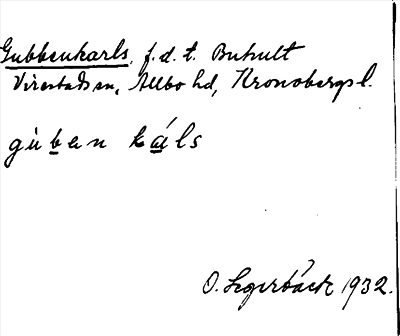 Gubbenkarls, f.d.t. Buhult
Virestads sn, Allbo hd, Kronobergs l.
gùben káls
O. Segerbäck 1932.